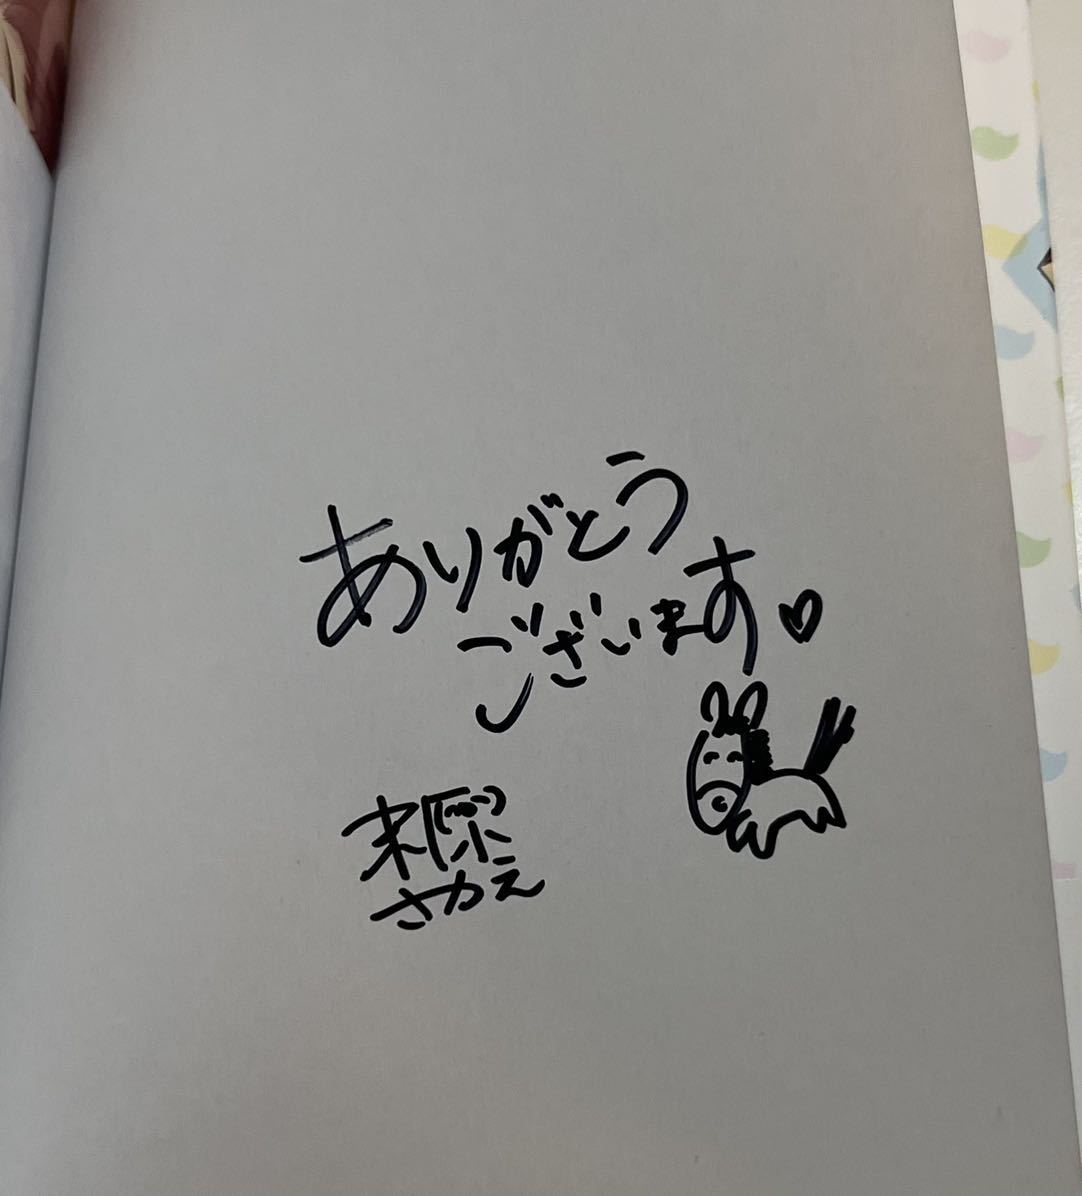 ありがとう
ございます♡
来原
さかえ